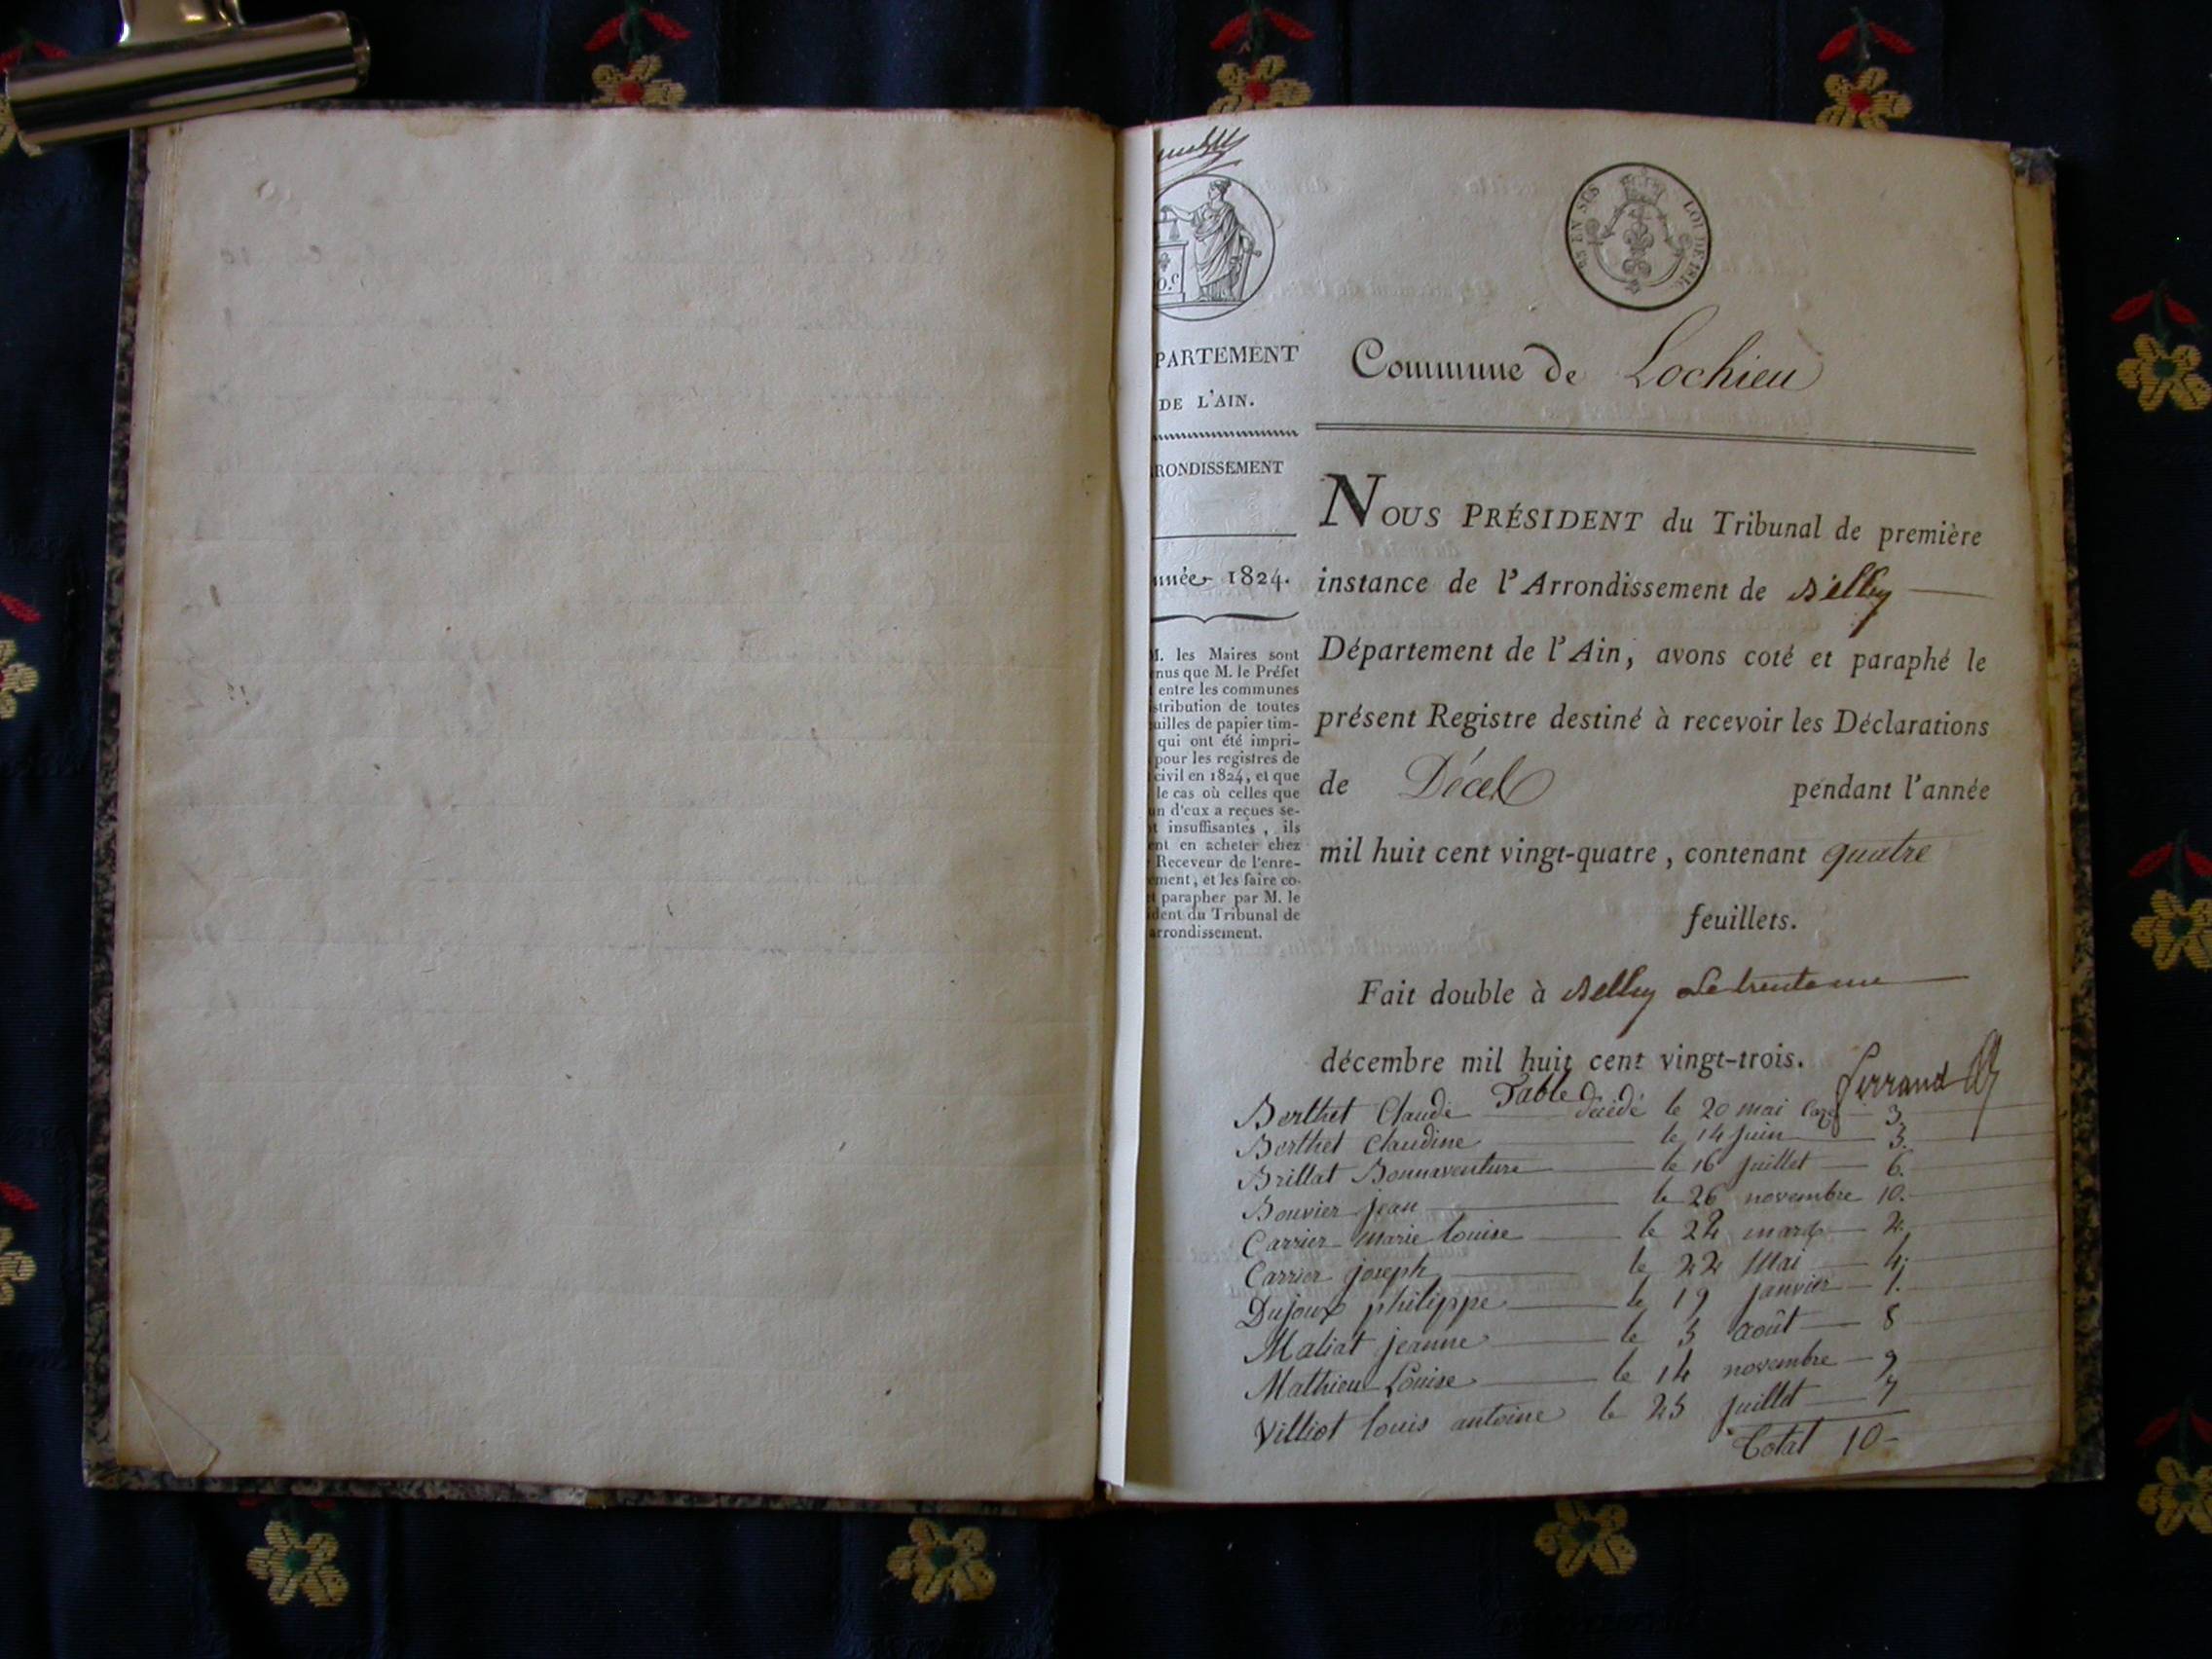 ES EN SUS LOI DE 1816
PARTEMENT
DE L'AIN.
RONDISSEMENT
nnée 1824.
M. les Maires sont
nus que M. le Préfet
entre les communes
stribution de toutes
uilles de papier tim-
qui ont été impri-
pour les registres de
civil en 1824, et que
le cas où celles que
un d'eux a reçues se-
t insuffisantes, ils
ent en acheter chez
Receveur de l'enre-
ement, et les faire co-
t parapher par M. le
ident du Tribunal de
arrondissement.
Commune de Lochieu
NOUS PRÉSIDENT du Tribunal de première
instance de l'Arrondissement de Belley
Département de l'Ain, avons coté et paraphé le
présent Registre destiné à recevoir les Déclarations
de Décès pendant l'année
mil huit cent vingt-quatre, contenant quatre
feuillets.
Fait double à Belley le trente un
décembre mil huit cent vingt-trois.
Ferrand
Table
Berthet Claude décédé le 20 mai 3.
Berthet Claudine le 14 juin 3.
Brillat Bonnaventure le 16 juillet 6.
Bouvier jean le 26 novembre 10.
Carrier marie louise le 22 mars 2.
Carrier joseph le 22 Mai 4.
Dujoux philippe le 19 janvier 1.
Maliat jeanne le 3 août 8
Mathieu Louise le 14 novembre 9
Villiot louis antoine le 25 juillet 7
Total 10